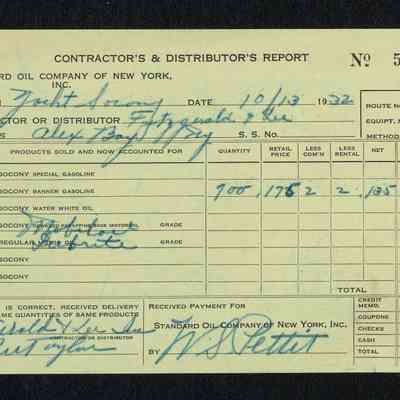 CONTRACTOR'S & DISTRIBUTOR'S REPORT No 5
RD OIL COMPANY OF NEW YORK,
INC.
Yacht Socony DATE 10/13 1932
ROUTE NO
CTOR OR DISTRIBUTOR Fitzgerald & Lee
EQUIPT.
Alex Bay N Y S. S. No.
METHOD
PRODUCTS SOLD AND ACCOUNTED FOR QUANTITY RETAIL PRICE LESS COM'N LESS RENTAL NET
SOCONY SPECIAL GASOLINE
SOCONY BANNER GASOLINE 900 .175 2 2 .135
SOCONY WATER WHITE OIL
SOCONY MOTOR GRADE
REGULAR GRADE
SOCONY
SOCONY
TOTAL
IS CORRECT, RECEIVED DELIVERY
ME QUANTITIES OF SAME PRODUCTS
RECEIVED PAYMENT FOR
STANDARD OIL COMPANY OF NEW YORK, INC.
CREDIT MEMO.
COUPONS
CHECKS
CASH
TOTAL
erald & Lee Inc
CONTRACTOR OR DISTRIBUTOR
Taylor
BY W S Pettit